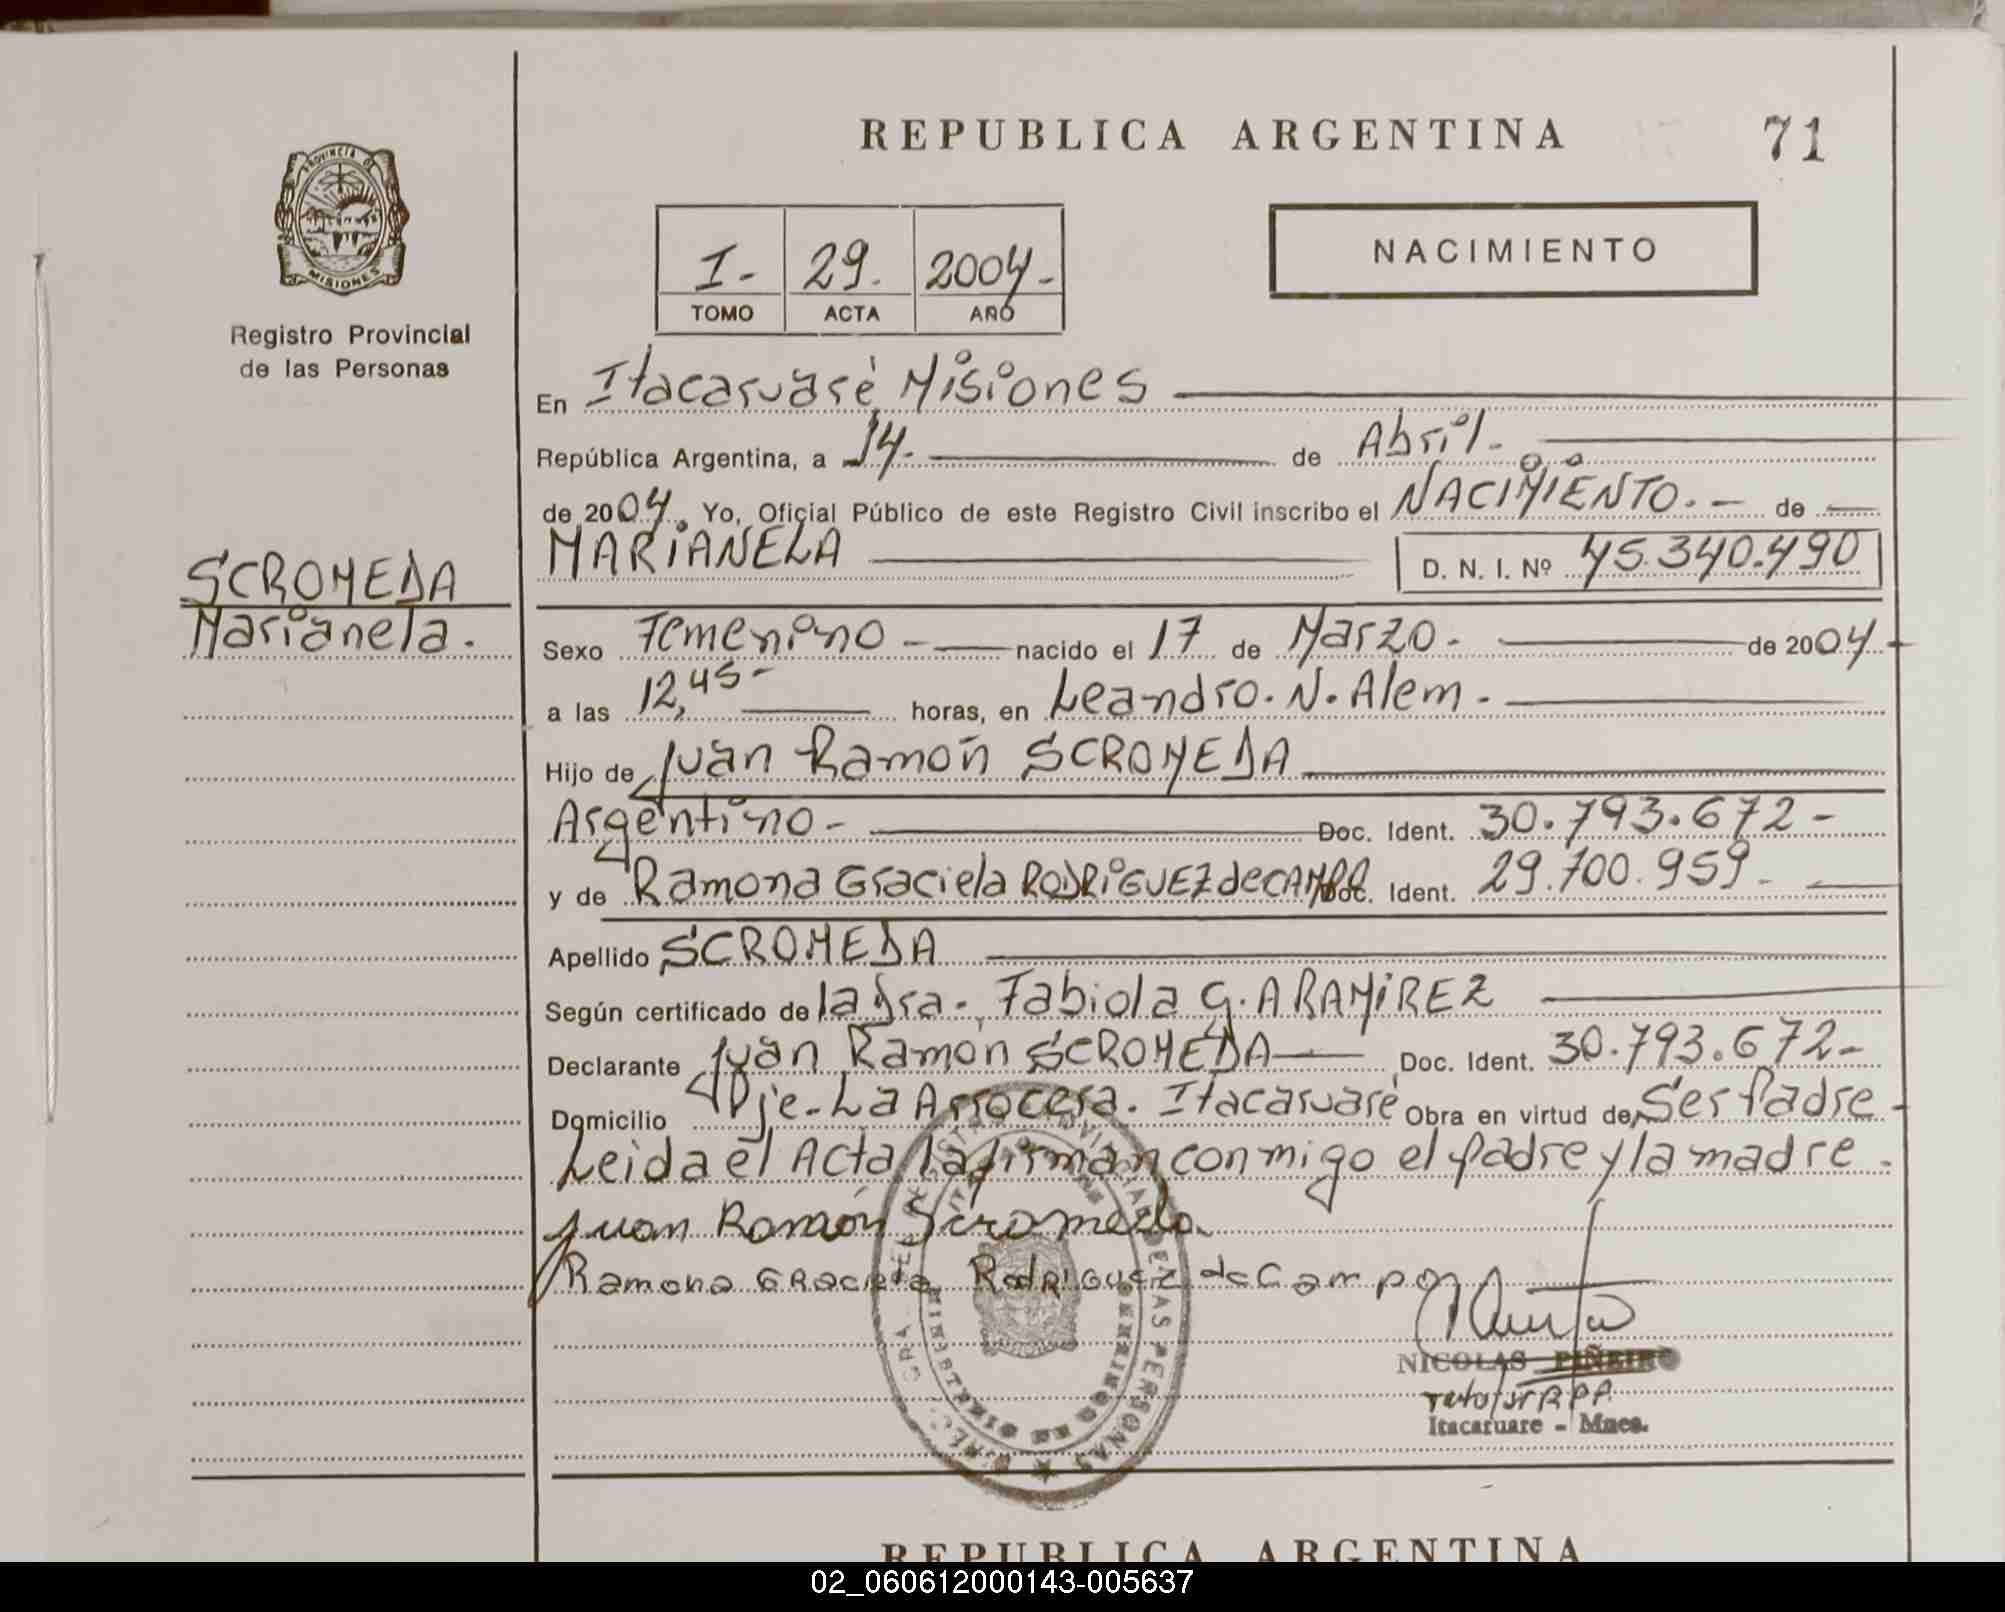 REPUBLICA ARGENTINA
71
PROVINCIA DE
MISIONES
Registro Provincial
de las Personas
I- 29. 2004-
TOMO ACTA AÑO
NACIMIENTO
En Itacaruaré, Misiones
República Argentina, a 14- de Abril-
de 2004. Yo, Oficial Público de este Registro Civil inscribo el NACIMIENTO.- de
MARIANELA D. N. I. Nº 45.340.490
SCROMEDA
Marianela.
Sexo Femenino - nacido el 17 de Marzo- de 2004-
a las 12,45- horas, en Leandro. N. Alem-
Hijo de Juan Ramón SCROMEDA
Argentino- Doc. Ident. 30.793.672-
y de Ramona Graciela RODRIGUEZ de CAMPO Doc. Ident. 29.700.959-
Apellido SCROMEDA
Según certificado de la Dra. Fabiola G. A RAMIREZ
Declarante Juan Ramon SCROMEDA Doc. Ident. 30.793.672-
Domicilio Pje. La Arrocera. Itacaruaré Obra en virtud de Ser Padre-
Leida el Acta la firman conmigo el padre y la madre.
Juan Ramón Scromeda
Ramona Graciela Rodriguez de Campo
NICOLAS PIÑEIRO
Itacaruare - Mnes.
REPUBLICA ARGENTINA
02_060612000143-005637